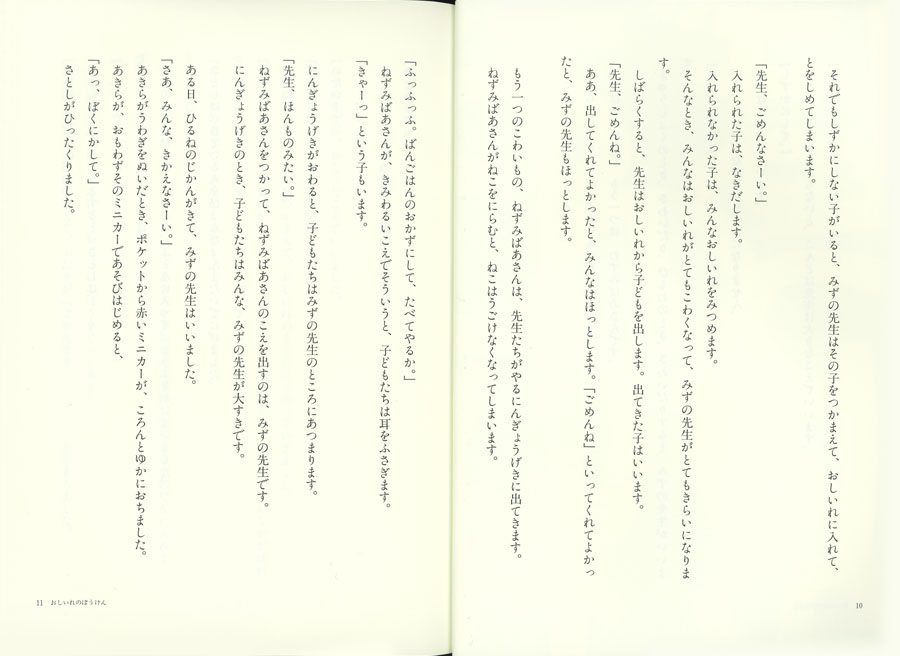 それでもしずかにしない子がいると、みずの先生はその子をつかまえて、おしいれに入れて、
とをしめてしまいます。
「先生、ごめんなさーい。」
入れられた子は、なきだします。
入れられなかった子は、みんなおしいれをみつめます。
そんなとき、みんなはおしいれがとてもこわくなって、みずの先生がとてもきらいになりま
す。
しばらくすると、先生はおしいれから子どもを出します。出てきた子はいいます。
「先生、ごめんね。」
ああ、出してくれてよかったと、みんなはほっとします。「ごめんね」といってくれてよかっ
たと、みずの先生もほっとします。
もう一つのこわいもの、ねずみばあさんは、先生たちがやるにんぎょうげきに出てきます。
ねずみばあさんがねこをにらむと、ねこはうごけなくなってしまいます。
10
「ふっふっふ。ばんごはんのおかずにして、たべてやるか。」
ねずみばあさんが、きみわるいこえでそういうと、子どもたちは耳をふさぎます。
「きゃーっ」という子もいます。
にんぎょうげきがおわると、子どもたちはみずの先生のところにあつまります。
「先生、ほんものみたい。」
ねずみばあさんをつかって、ねずみばあさんのこえを出すのは、みずの先生です。
にんぎょうげきのとき、子どもたちはみんな、みずの先生が大すきです。
ある日、ひるねのじかんがきて、みずの先生はいいました。
「さあ、みんな、きかえなさーい。」
あきらがうわぎをぬいだとき、ポケットから赤いミニカーが、ころんとゆかにおちました。
あきらが、おもわずそのミニカーであそびはじめると、
「あっ、ぼくにかして。」
さとしがひったくりました。
11 おしいれのぼうけん